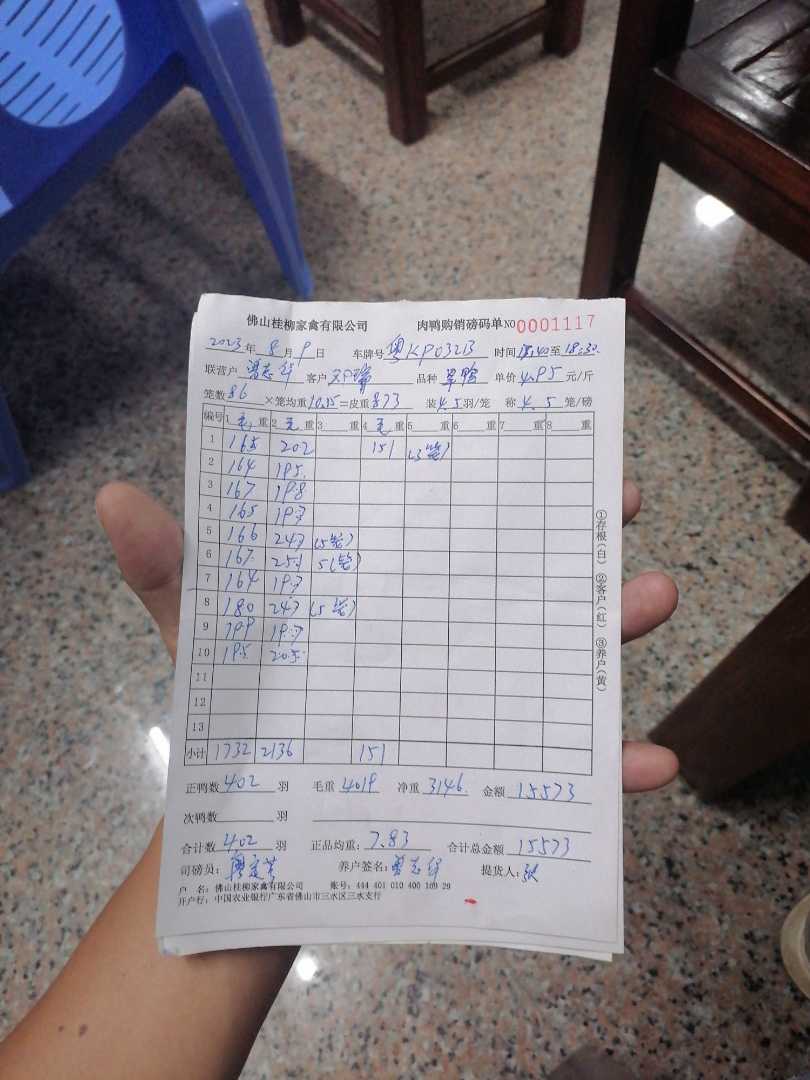 佛山桂柳家禽有限公司 肉鸭购销磅码单 NO 0001117
2023年 8月 9日 车牌号 粤KP03213 时间 至 18:30
联营户 曾志华 客户 品种 草鸭 单价 4.95 元/斤
笼数 86 ×笼均重 10.15=皮重 873 装 4.5 羽/笼 称 4.5 笼/磅
编号 1 毛 重 2 毛 重 3 重 4 毛 重 5 重 6 重 7 重 8 重
1 165 202 151 (3笼)
2 164 195
3 167 198
4 165 197
5 166 247 (5笼)
6 167 251 5(笼)
7 164 197
8 180 247 (5笼)
9 199 197
10 195 205
11
12
13
小计 1732 2136 151
正鸭数 402 羽 毛重 4019 净重 3146 金额 15573
次鸭数 羽
合计数 402 羽 正品均重: 7.83 合计总金额 15573
司磅员: 养户签名: 曾志华 提货人: 张
户 名: 佛山桂柳家禽有限公司 账号: 444 401 010 400 109 29
开户行: 中国农业银行广东省佛山市三水区三水支行
①存根(白) ②客户(红) ③养户(黄)